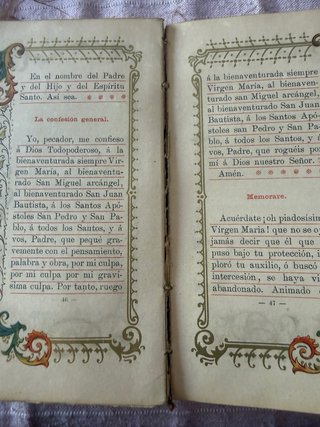 En el nombre del Padre
y del Hijo y del Espíritu
Santo. Así sea.
La confesión general.
Yo, pecador, me confieso
á Dios Todopoderoso, á la
bienaventurada siempre Vir-
gen María, al bienaventu-
rado San Miguel arcángel,
al bienaventurado San Juan
Bautista, á los Santos Apó-
stoles San Pedro y San Pa-
blo, á todos los Santos, y á
vos, Padre, que pequé gra-
vemente con el pensamiento,
palabra y obra, por mi culpa,
por mi culpa por mi graví-
sima culpa. Por tanto, ruego
— 46 —
á la bienaventurada siempre
Virgen María, al bienaventu-
rado san Miguel arcángel,
al bienaventurado San Juan
Bautista, á los Santos Apó-
stoles san Pedro y San Pa-
blo, á todos los Santos, y á
vos, Padre, que roguéis por
mí á Dios nuestro Señor.
Amén.
Memorare.
Acuérdate ¡oh piadosísim
Virgen María! que no se oy
jamás decir que él que
puso bajo tu protección, i
ploró tu auxilio, ó buscó
intercesión, se haya vi
abandonado. Animado
— 47 —